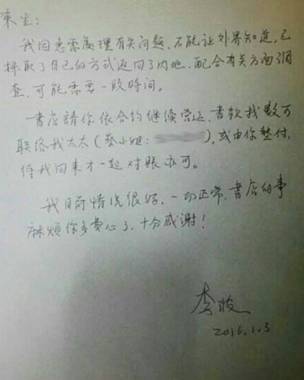 東主:
我因急需處理有关问题,不能让外界知道,已
採取了自己的方式返回了内地,配合有关方面调
查,可能需要一段時间。
書店請你依合約继续营运,書款找数可
联络我太太(蔡小姐:),或由你垫付,
待我回来才一起对賬亦可。
我目前情况很好,一切正常,書店的事
麻煩你多費心了,十分感谢!
李波
2016.1.3